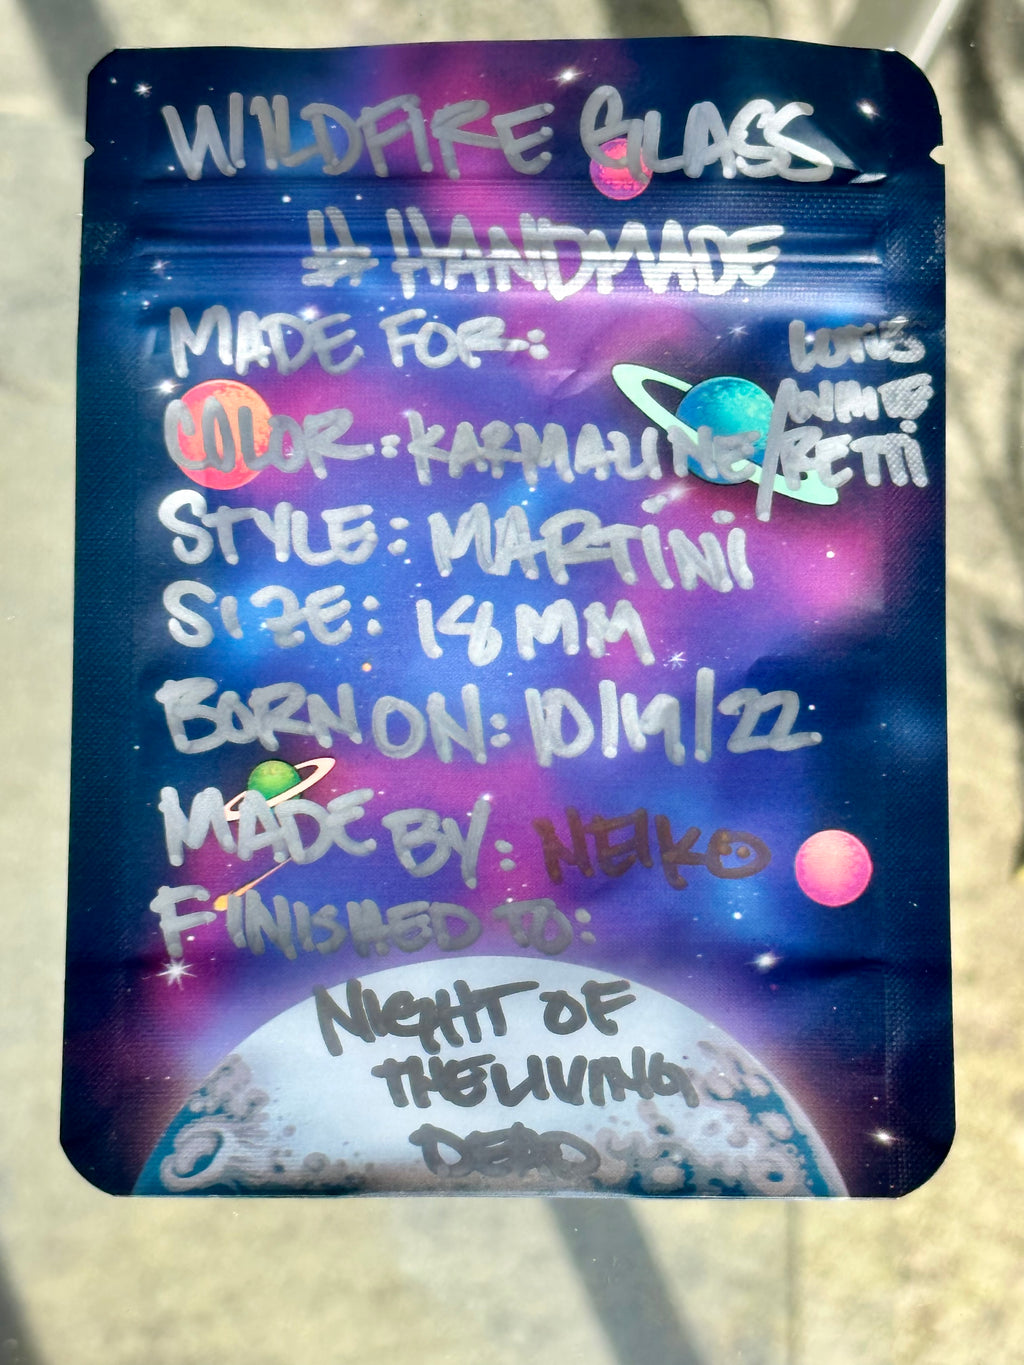 WILDFIRE GLASS
# HANDMADE
MADE FOR:
COLOR: KARMALINE/RETTI
STYLE: MARTINI
SIZE: 18MM
BORN ON: 10/19/22
MADE BY: NEIKO
FINISHED TO:
NIGHT OF
THE LIVING
DEAD